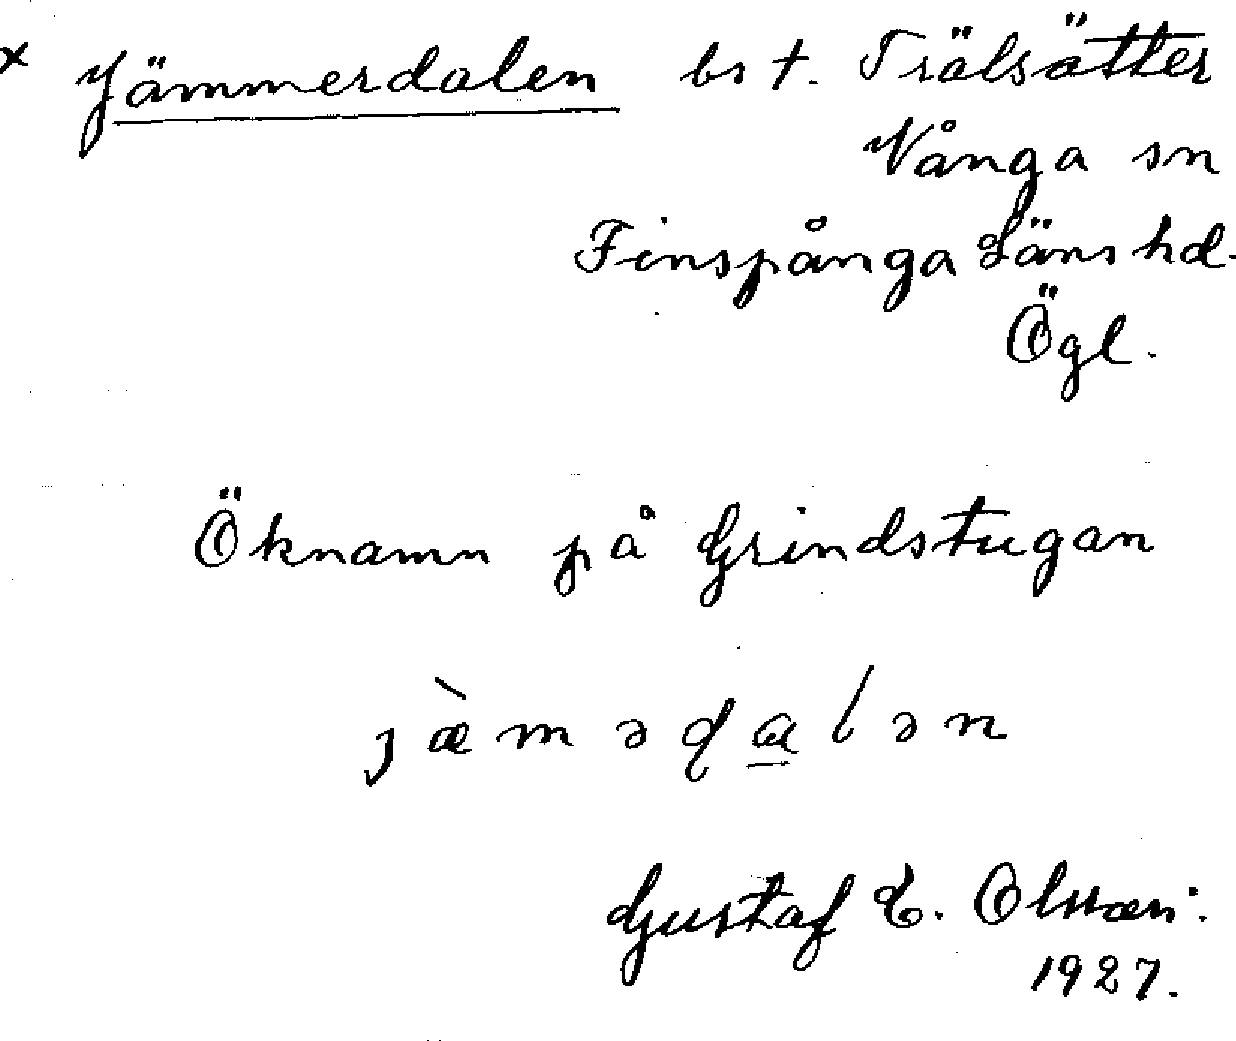 x Jämmerdalen bs t. Trälsätter
Vånga sn
Finspånga Läns hd.
Ögl.
Öknamn på Grindstugan
jæ̀mədalən
Gustaf E. Olsson.
1927.